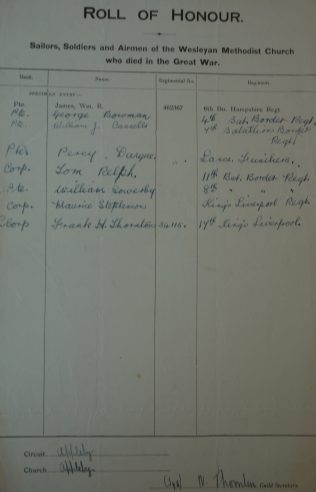 ROLL OF HONOUR.
Sailors, Soldiers and Airmen of the Wesleyan Methodist Church
who died in the Great War.
Rank. Name. Regimental No. Regiment.
SPECIMEN ENTRY—
Pte. James, Wm. R. 462367 6th Bn. Hampshire Regt.
Pte. George Bowman 4th Bat. Border Regt.
Pte. William J. Cassells 4th Battalion Border
Regt
Pte Percy Dargue. Lancs. Fusiliers.
Corp. Tom Relph. 11th Bat. Border Regt.
Pte. William Sowerby 8th " " "
Corp. Maurice Stephenson King's Liverpool Regt.
Corp Frank H. Thornton 17th King's Liverpool.
Circuit Appleby
Church Appleby.
N. Thornton Guild Secretary.